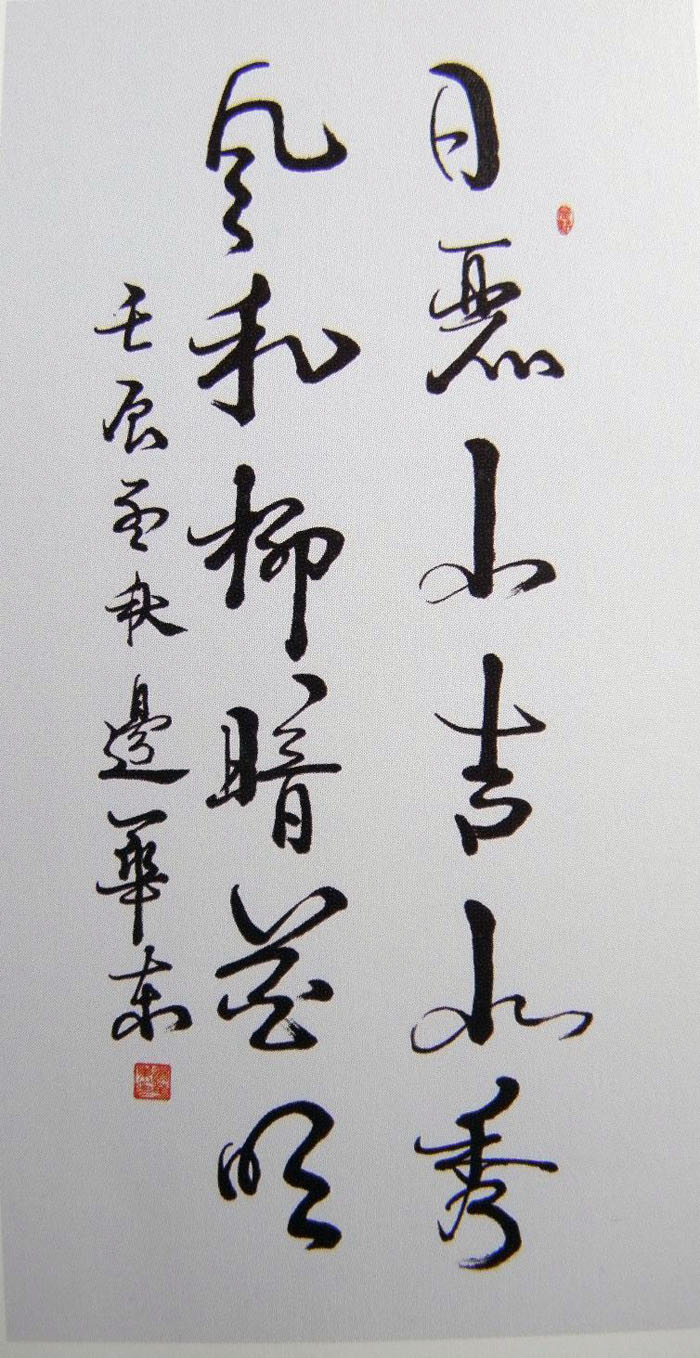 日麗山青水秀
風和柳暗花明
壬辰孟秋邊華東